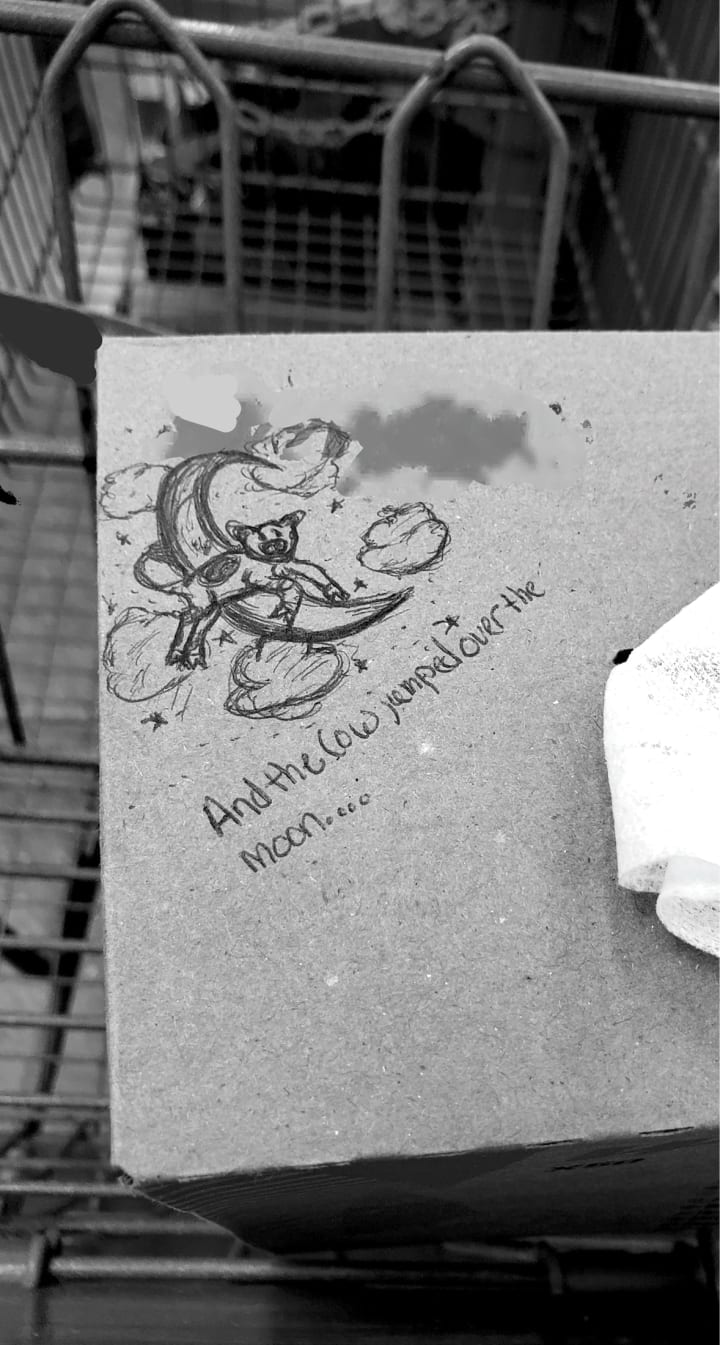 And the Cow jumped over the
moon....